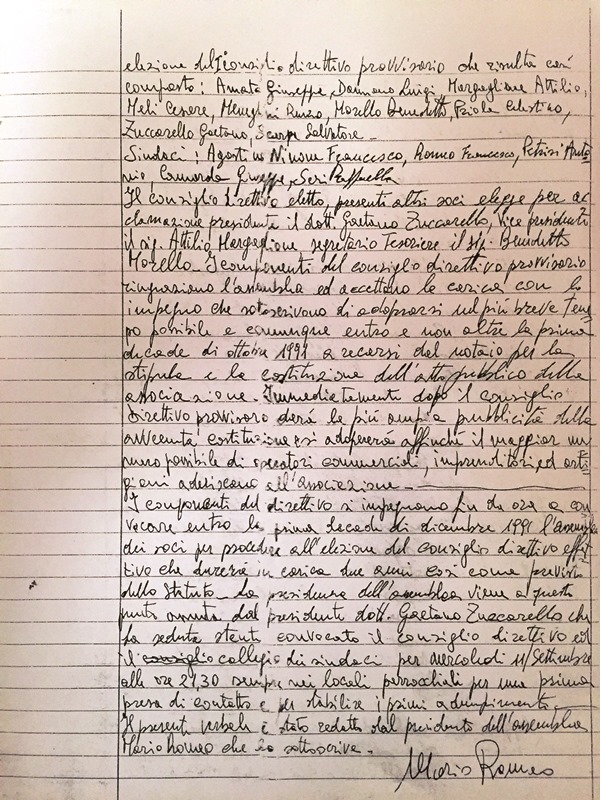 elezione del I consiglio direttivo provvisorio che risulta così
composto: Amata Giuseppe, Damiano Luigi, Margaglione Attilio,
Meli Cesare, Meneghini Renzo, Morello Benedetto, Paiola Celestino,
Zuccarello Gaetano, Scarpa Salvatore.
Sindaci: Agostino Ninone Francesco, Romeo Francesco, Petrisi Anto
nio, Camarda Giuseppe, Seri Raffaella
Il consiglio direttivo eletto, presenti altri soci elegge per ac
clamazione presidente il dott. Gaetano Zuccarello, Vice presidente
il sig. Attilio Margaglione segretario Tesoriere il sig. Benedetto
Morello. I componenti del consiglio direttivo provvisorio
ringraziano l'assemblea ed accettano la carica con lo
impegno che sottoscrivono di adoprarsi nel più breve tem
po possibile e comunque entro e non oltre la prima
decade di ottobre 1991 a recarsi dal notaio per la
stipula e la costituzione dell'atto pubblico della
associazione. Immediatamente dopo il consiglio
direttivo provvisoro darà la più ampia pubblicità della
avvenuta costituzione e si adopererà affinché il maggior nu
mero possibile di operatori commerciali, imprenditori ed arti
giani aderiscano all'Associazione.
I componenti del direttivo si impegnano fin da ora a con
vocare entro la prima decade di dicembre 1991 l'assemblea
dei soci per procedere all'elezione del consiglio direttivo effet
tivo che durerà in carica due anni così come previsto
dallo Statuto. La presidenza dell'assemblea viene a questo
punto assunta dal presidente dott. Gaetano Zuccarello che
la seduta stante convocato il consiglio direttivo ed
il consiglio collegio dei sindaci per mercoledì 11/Settembre
alle ore 21,30 sempre nei locali parrocchiali per una prima
presa di contatto e per stabilire i primi adempimenti.
Il presente verbale è stato redatto dal presidente dell'assemblea
Mario Romeo che lo sottoscrive.
Mario Romeo